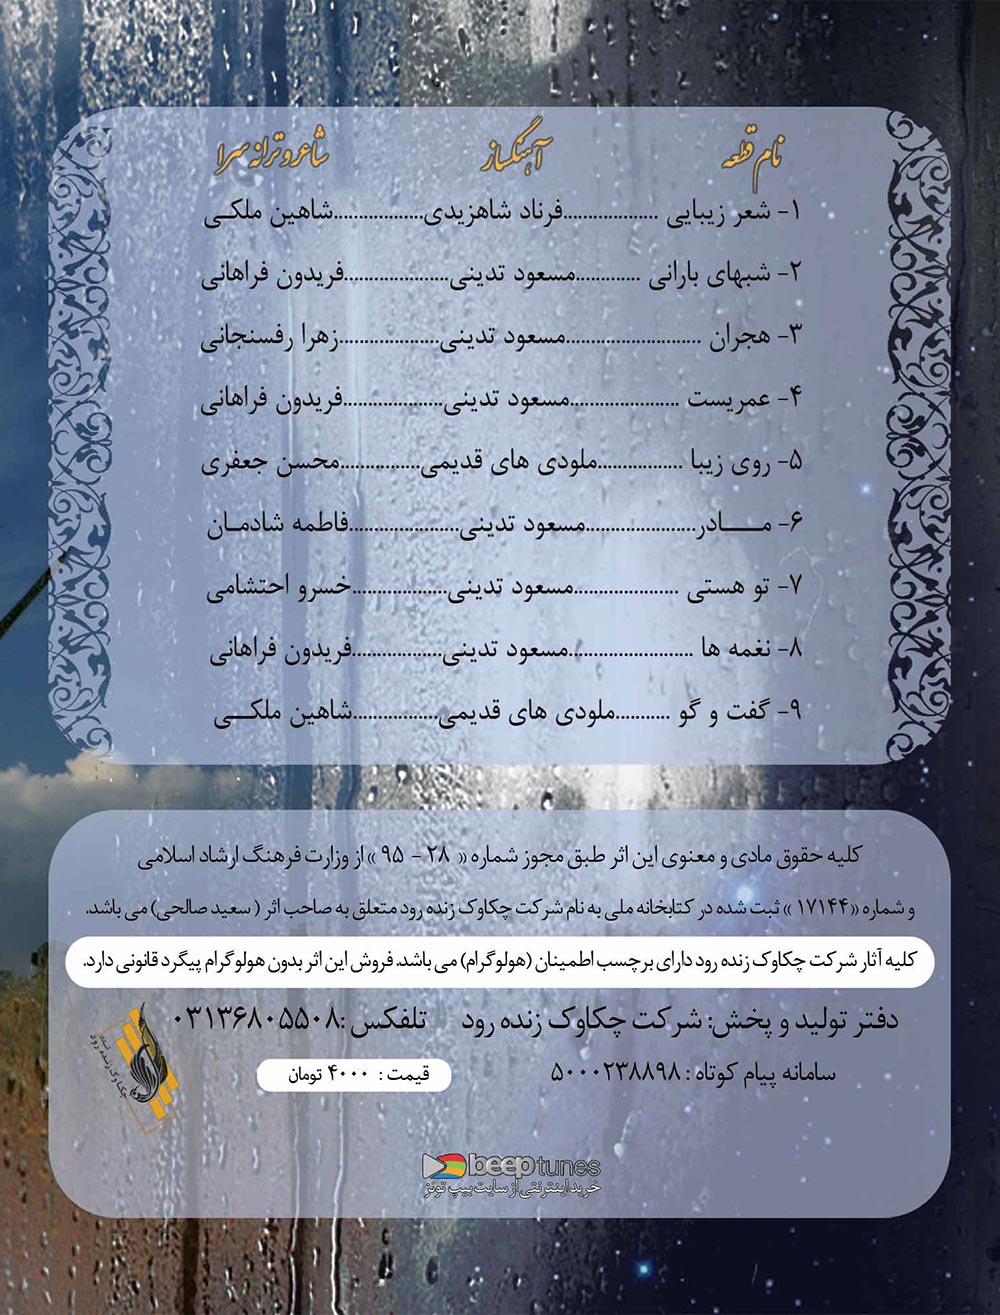 نام قطعه آهنگساز شاعر و ترانه سرا
۱- شعر زیبایی ...................فرناد شاهزیدی..................شاهین ملکـی
۲- شبهای بارانی .............مسعود تدینی.....................فریدون فراهانی
۳- هجران ...........................مسعود تدینی....................زهرا رفسنجانی
۴- عمریست ......................مسعود تدینی....................فریدون فراهانی
۵- روی زیبا .................ملودی های قدیمی................محسن جعفری
۶- مـــــادر......................مسعود تدینی......................فاطمه شادمـان
۷- تو هستی .....................مسعود تدینی...................خسرو احتشامی
۸- نغمه ها .........................مسعود تدینی..................فریدون فراهانی
۹- گفت و گو ...........ملودی های قدیمی.................شاهین ملکــی
کلیه حقوق مادی و معنوی این اثر طبق مجوز شماره « ۲۸ - ۹۵ » از وزارت فرهنگ ارشاد اسلامی
و شماره «۱۷۱۴۴ » ثبت شده در کتابخانه ملی به نام شرکت چکاوک زنده رود متعلق به صاحب اثر ( سعید صالحی) می باشد.
کلیه آثار شرکت چکاوک زنده رود دارای برچسب اطمینان (هولوگرام) می باشد. فروش این اثر بدون هولوگرام پیگرد قانونی دارد.
دفتر تولید و پخش: شرکت چکاوک زنده رود تلفکس :۰۳۱۳۶۸۰۵۵۰۸
سامانه پیام کوتاه : ۵۰۰۰۲۳۸۸۹۸
قیمت : ۴۰۰۰ تومان
چکاوک زنده رود
beeptunes
خرید اینترنتی از سایت بیپ تونز